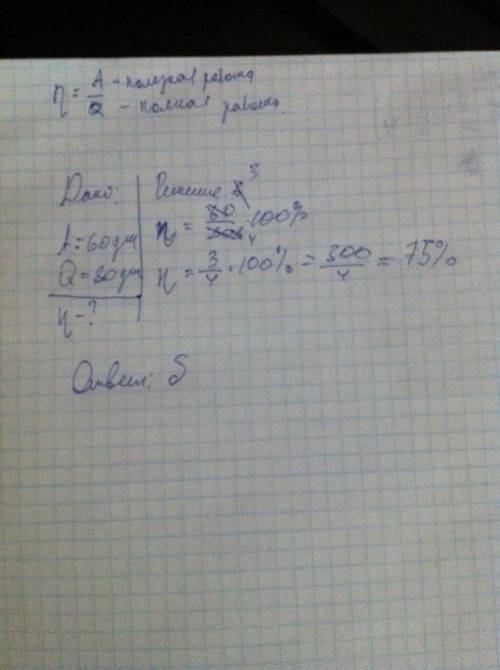 η = A/Q – полезная работа
– полная работа.
Дано:
A = 60 дж
Q = 80 дж
η – ?
Решение
η = 60/ · 100% 3 4
η = 3/4 · 100% = 300/4 = 75%
Ответ: Б